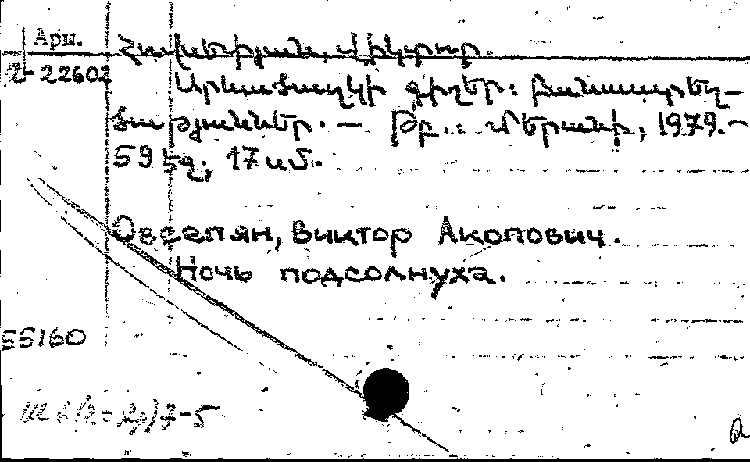 Арм.
2-22602
Հովսեփյան, Վիկտոր.
Արևածաղկի գիշեր: Բանաստեղ-
ծություններ. — Թբ.: Մերանի, 1979.—
59 էջ, 17 սմ.
Овсепян, Виктор Акопович.
Ночь подсолнуха.
55160